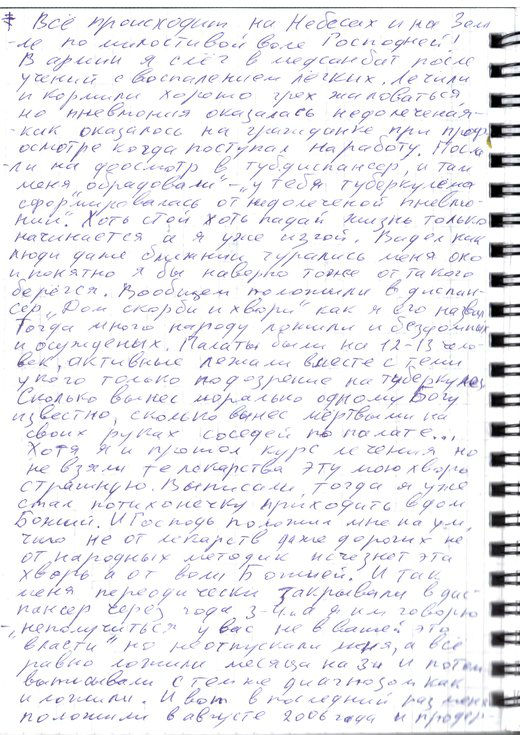 Всё происходит на Небесах и на Зем-
-ле по милостивой воле Господней!
В армии я слёг в медсанбат после
учений с воспалением лёгких. Лечили
и кормили хорошо грех жаловаться
но пневмония оказалась недолеченая-
-как оказалось на гражданке при проф-
осмотре когда поступал на работу. Посла-
-ли на доосмотр в тубдиспансер, и там
меня "обрадовали" - "у тебя туберкулема
сформировалась от недолеченой пневмо-
нии". Хоть стой хоть падай жизнь только
начинается а я уже изгой. Видел как
люди даже ближнии чурались меня оно
и понятно я бы наверно тоже от такого
берёгся. Вообщем положили в диспан-
сер "Дом скорби и хвори" как я его назвал
Тогда много народу лежили и бездомных
и осужденых. Палаты были на 12-13 чело-
век, активные лежали вместе с теми
у кого только подозрение на туберкулез
Сколько вынес морально одному Богу
известно, сколько вынес мёртвыми на
своих руках соседей по палате...
Хотя я и прошол курс лечения но
не взяли те лекарства эту мою хворь
страшную. Выписали, тогда я уже
стал потихонечку приходить в дом
Божий. И Господь положил мне на ум,
что не от лекарств даже дорогих не
от народных методик исчезнет эта
хворь а от воли Божией. И так
меня переодически закрывали в дис-
пансер через года 3-4 а я им говорю
-"неполучиться у вас не в вашей это
власти" но неотпускали меня, а всё
равно ложили месяца на 3и и потом
выписывали с тем же диагнозом как
и ложили. И вот в последний раз меня
положили в августе 2006 года и продер-